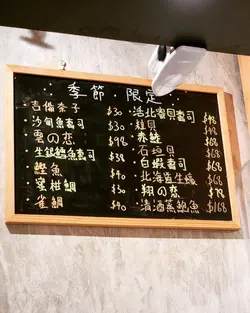 季節限定
·吉備奈子 $30
·沙甸魚壽司 $30
·雲の恋 $98
·生銀鱈魚壽司 $38
·鰹魚 $40
·蜜柑鯛 $30
·雀鯛 $40
·活北寄貝壽司 $48
·桂貝
·赤鯥 $68
·石垣貝 $68
·白蝦壽司 $68
·北海道生蠔 $68
·翔の恋
·清酒蒸鮑魚 $168